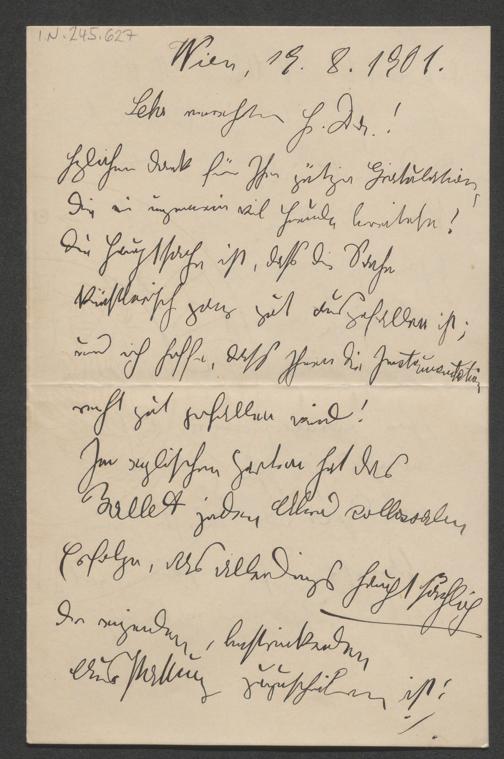 I.N. 245.627
Wien, 19. 8. 1901.
Sehr verehrter H. Dr.!
Hzlichen Dank für Ihre gütige Gratulation,
die mir ungemein viel Freude bereitete!
Die Hauptsache ist, daß die Sache
künstlerisch ganz gut ausgefallen ist;
und ich hoffe, daß Ihnen die Instrumentation
recht gut gefallen wird!
Im englischen Garten hat das
Ballet jeden Abend collossalen
Erfolg, was allerdings hauptsächlich
der reizenden, bestrickenden
Ausstattung zuzuschreiben ist!